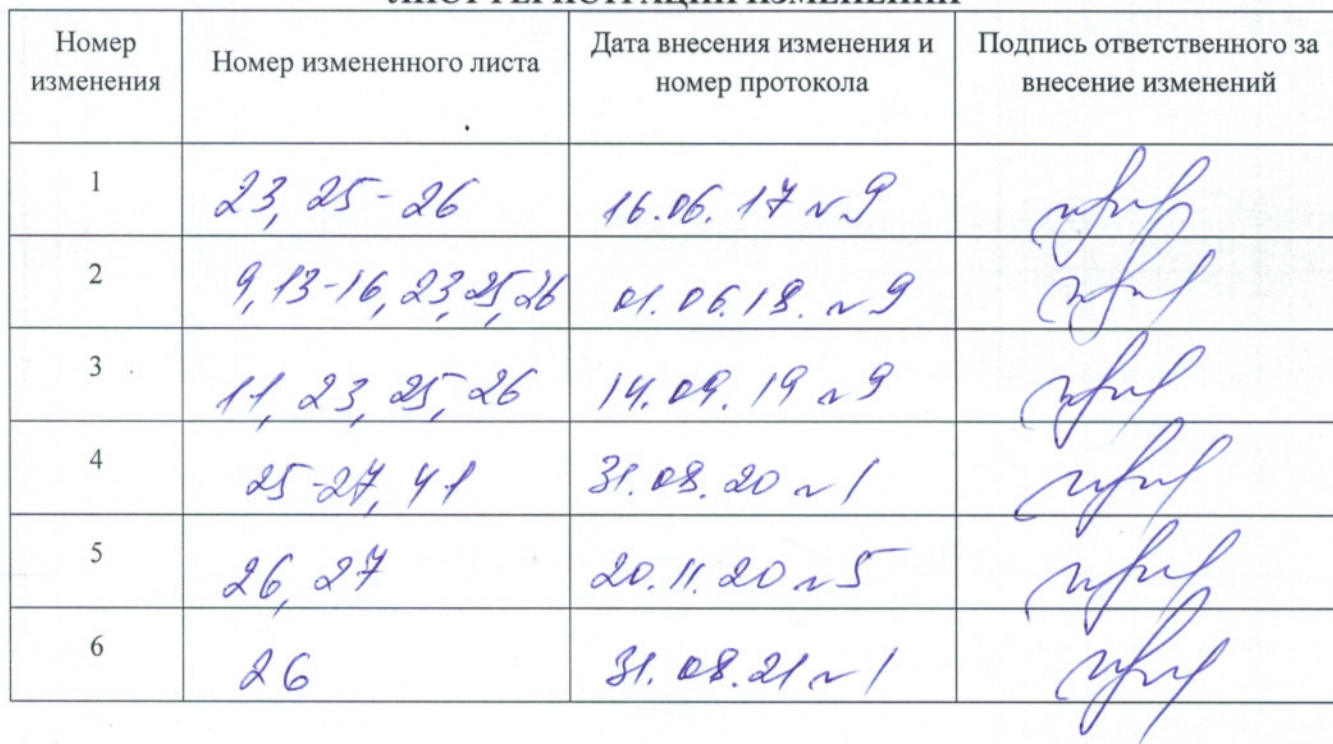 ЛИСТ РЕГИСТРАЦИИ ИЗМЕНЕНИЙ
Номер изменения | Номер измененного листа | Дата внесения изменения и номер протокола | Подпись ответственного за внесение изменений
1 | 23, 25-26 | 16.06.17 №9
2 | 9, 13-16, 23, 25, 26 | 01.06.18. №9
3 | 11, 23, 25, 26 | 14.09.19 №9
4 | 25-27, 41 | 31.08.20 №1
5 | 26, 27 | 20.11.20 №5
6 | 26 | 31.08.21 №1